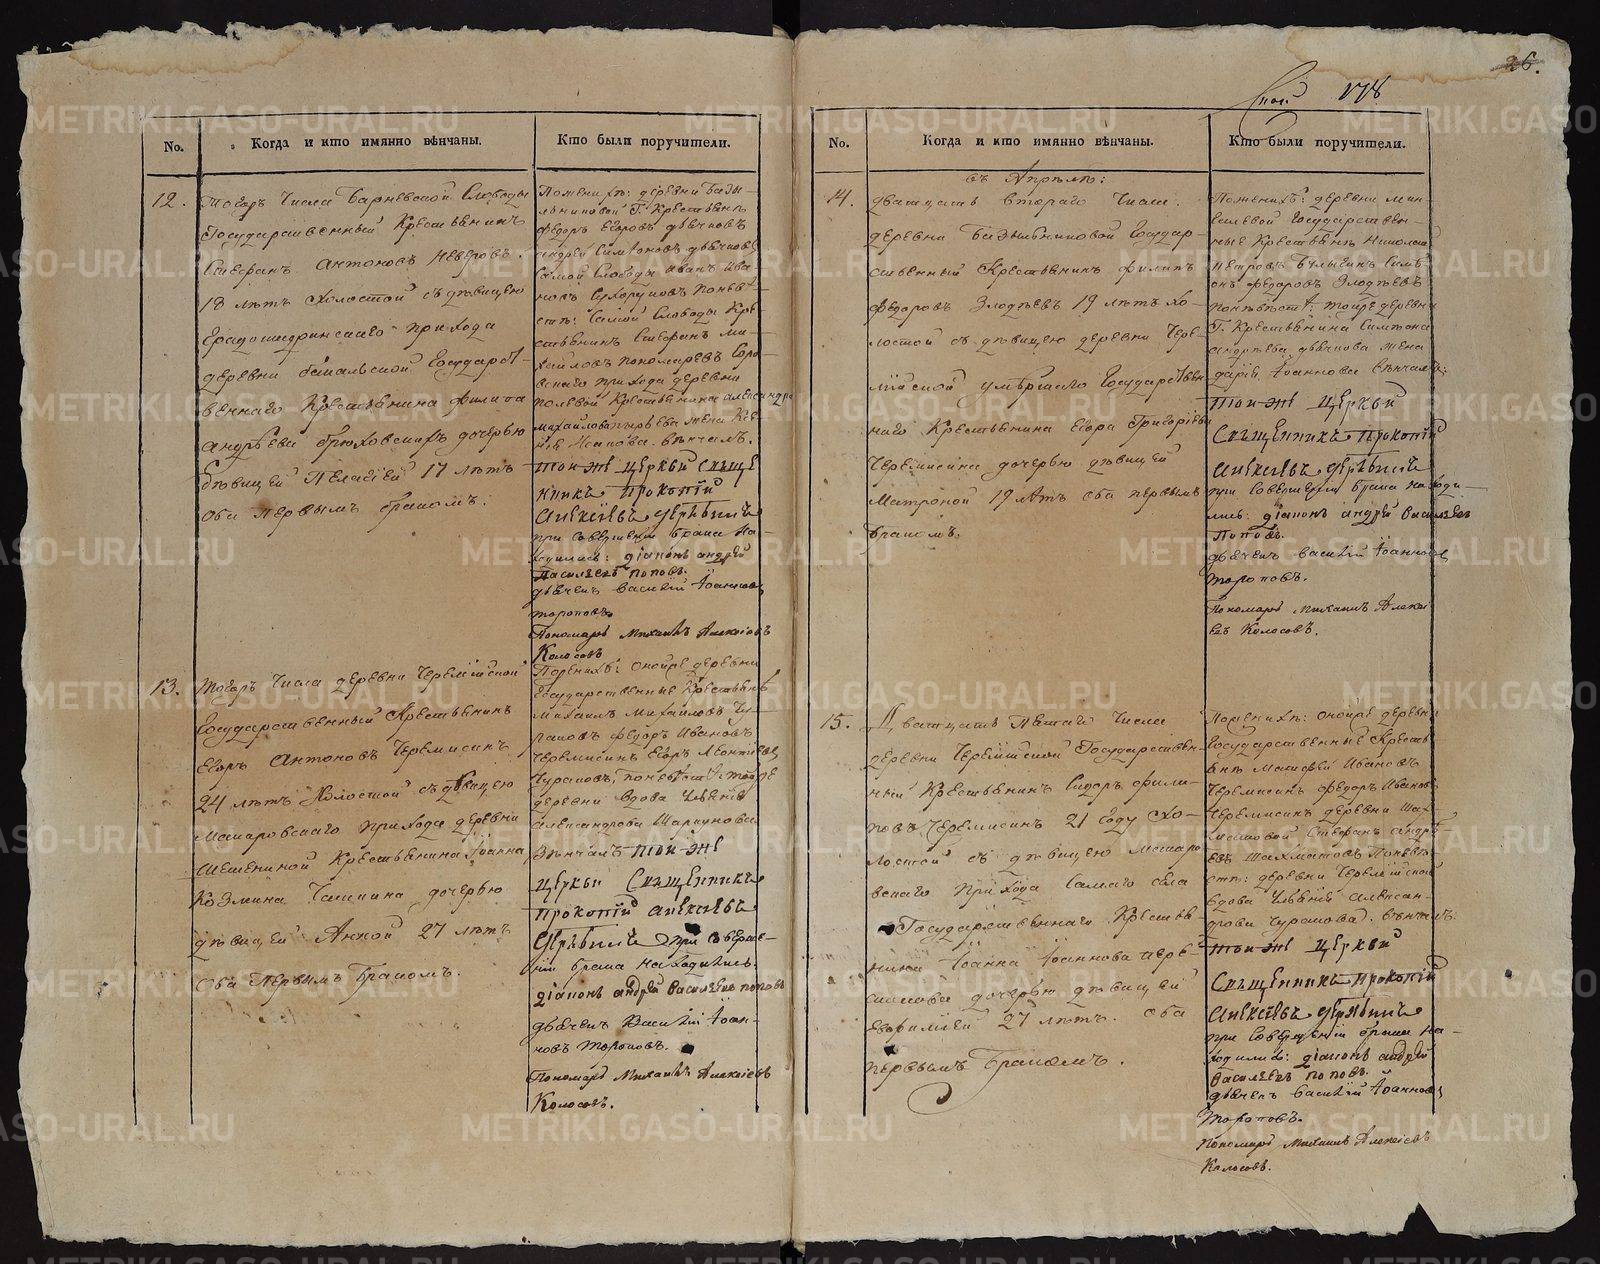 No.
Когда и кто имянно вѣнчаны.
Кто были поручители.
12.
Тогожъ Числа Барневской Слободы
Государственный Крестьянинъ
Стефанъ Антоновъ Неверовъ.
18 лѣтъ холостой съ дѣвицею
прихода
деревни Государст-
веннаго Крестьянина Филипа
Андрѣева дочерью
дѣвицей Пелагiей 17 лѣтъ
Оба первымъ бракомъ.
Поженихѣ: деревни
Г. Крестьяне
Федоръ Егоровъ Дьячковъ
Андрей Дьячковъ
Самой Слободы Иванъ Ива-
новъ Сухоруковъ Поневѣ-
стѣ: Самой Слободы Кре-
стьянинъ Стефанъ Ми-
хайловъ Пономаревъ
прихода деревни
Крестьянина Александра
Михайлова жена
вѣнчалъ.
Той-же Церкви Свяще
нникъ Прокопiй
Алексѣевъ
при Совершенiи Брака На-
ходились: Дiаконъ Андрей
Васильевъ Поповъ.
Дьячекъ Василiй Iоанновъ
Тороповъ
Пономарь Михаилъ Алексiевъ
Колосовъ
13.
Тогожъ Числа деревни Черемiской
Государственный Крестьянинъ
Егоръ Антоновъ Черемисинъ
24 лѣтъ Холостой съ дѣвицею
Макаровскаго прихода деревни
Крестьянина Iоанна
Козмина дочерью
дѣвицей Анной 27 лѣтъ
Оба Первымъ Бракомъ.
Поженихѣ: оной же деревни
Государственные Крестьяне
Михаилъ Михайловъ Чу-
раковъ Федоръ Ивановъ
Черемисинъ Егоръ Леонтiевъ
Чураковъ, поневѣстѣ той же
деревни вдова
Александрова
Вѣнчалъ Той-же
Церкви Священникъ
Прокопiй Алексѣевъ
при Соверше-
нiи брака находились.
Дiаконъ Андрей Васильевъ Поповъ
Дьячекъ Василiй Iоан-
новъ Тороповъ.
Пономарь Михаилъ Алексiевъ
Колосовъ.
26.
178
No.
Когда и кто имянно вѣнчаны.
Кто были поручители.
въ Апрѣлѣ:
14.
Дватцать втораго Числа.
деревни Государ-
ственный Крестьянинъ Филипъ
Федоровъ Злодѣевъ 19 лѣтъ хо-
лостой съ дѣвицею деревни Чере-
мiской умершаго Государствен
наго Крестьянина Егора Григорiева
Черемисина дочерью дѣвицей
Матроной 19 лѣтъ оба первымъ
Бракомъ.
Поженихѣ: деревни
Государствен-
ные Крестьяне Николай
Петровъ
Федоровъ Злодѣевъ
Поневѣстѣ: той же деревни
Г. Крестьянина Симеона
Андрѣева Дьячкова жена
Дарiя Iоаннова вѣнчалъ:
Той-же Церкви
Священникъ Прокопiй
Алексѣевъ
при Совершенiи Брака находи-
лись: Дiаконъ Андрей Васильевъ
Поповъ.
Дьячекъ Василiй Iоанновъ
Тороповъ.
Пономарь Михаилъ Алексi
евъ Колосовъ.
15.
Дватцать Пятаго Числа
деревни Черемiской Государствен-
ный Крестьянинъ Сидоръ Фили-
повъ Черемисинъ 21 году хо-
лостой съ дѣвицею Макаро
вскаго прихода самаго села
Государственнаго Крестья-
нина Iоанна Iоаннова
дочерью дѣвицей
27 лѣтъ. оба
первымъ Бракомъ.
Поженихѣ: оной же деревни
Государственные Крестья-
не Ивановъ
Черемисинъ Федоръ Ивановъ
Черемисинъ деревни Шах-
матовой Стефанъ Андрѣ-
евъ Шахматовъ Поневѣ-
стѣ: деревни Черемiской
вдова Алексан-
дрова Чуракова. вѣнчалъ
Той-же Церкви
Священникъ Прокопiй
Алексѣевъ
при Совершенiи брака на-
ходились: Дiаконъ Андрей
Васильевъ Поповъ.
Дьячекъ Василiй Iоанновъ
Тороповъ.
Пономарь Михаилъ Алексiевъ
Колосовъ.
METRIKI.GASO-URAL.RU